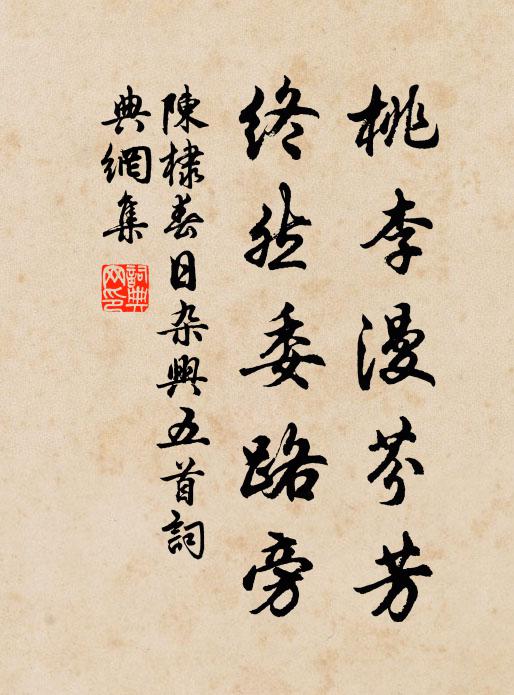 桃李漫芬芳
終然委路旁
陳棣春日杂興五首詞
典網集
詞典
网印